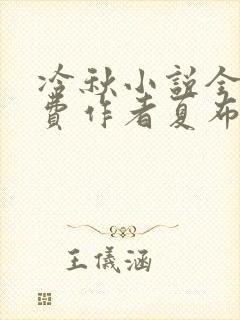 冷秋小説全
費作者夏布
王儀涵